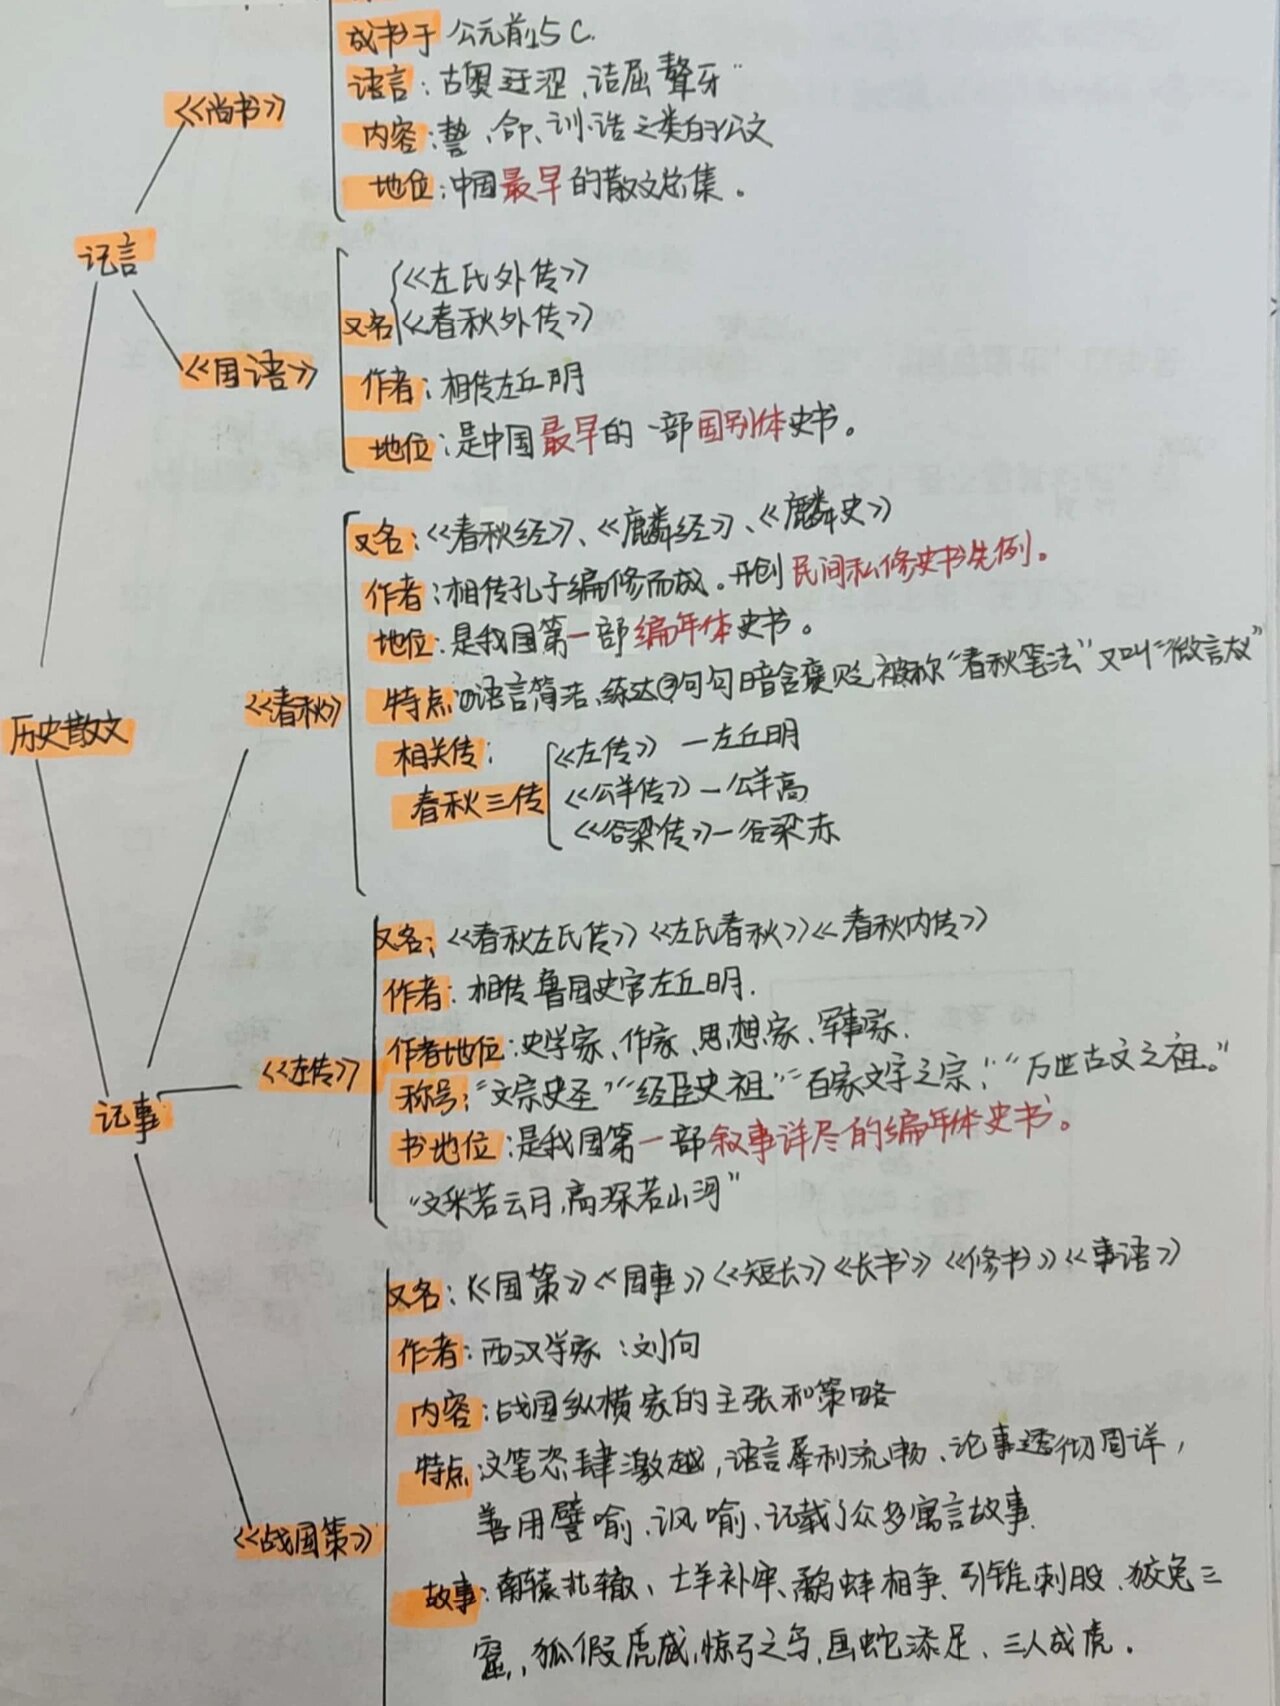 成书于 公元前15C.
语言：古奥迂涩、诘屈聱牙
《尚书》
内容：誓、命、训、诰之类的公文
地位：中国最早的散文总集。
记言
《左氏外传》
又名《春秋外传》
《国语》
作者：相传左丘明
地位：是中国最早的一部国别体史书。
又名：《春秋经》、《麟经》、《麟史》
作者：相传孔子编修而成。开创民间私修史书先例。
地位：是我国第一部编年体史书。
特点①语言简洁、练达②句句暗含褒贬 被称"春秋笔法"又叫"微言
《春秋》
历史散文
相关传：
春秋三传
《左传》—左丘明
《公羊传》—公羊高
《谷梁传》—谷梁赤
又名：《春秋左氏传》《左氏春秋》《春秋内传》
作者：相传鲁国史官左丘明.
作者地位：史学家、作家、思想家、军事家.
《左传》
称号："文宗史圣""经臣史祖""百家文字之宗"、"万世古文之祖。"
记事
书地位：是我国第一部叙事详尽的编年体史书。
"文采若云月,高深若山河"
又名：《国策》《国事》《短长》《长书》《修书》《事语》
作者：西汉学家：刘向
内容：战国纵横家的主张和策略
特点:文笔恣肆激越,语言犀利流畅、论事透彻周详,
善用譬喻、讽喻、记载了众多寓言故事.
《战国策》
故事：南辕北辙、亡羊补牢、鹬蚌相争、引锥刺股、狡兔三
窟,狐假虎威,惊弓之鸟,画蛇添足、三人成虎.